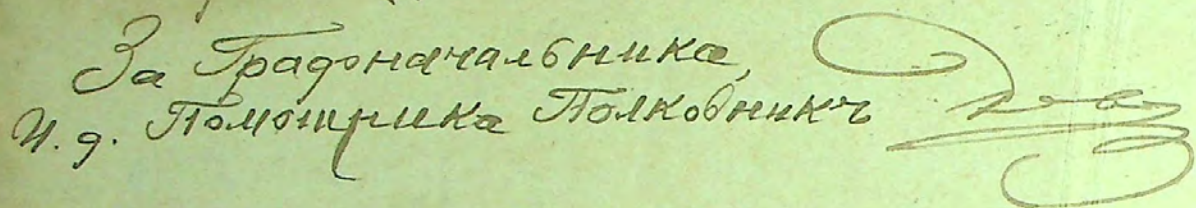 За Градоначальника,
И. д. Помощника Полковникъ